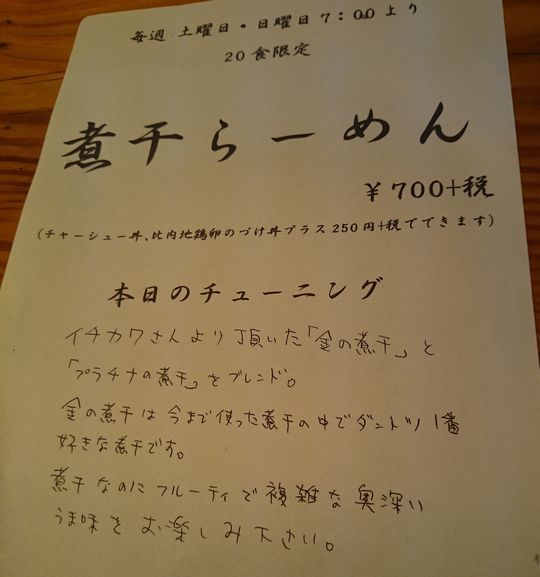 毎週 土曜日・日曜日 7:00より
20食限定
煮干らーめん
¥700+税
(チャーシュー丼、比内地鶏卵のづけ丼プラス250円+税でできます)
本日のチューニング
イチカワさんより頂いた「金の煮干」と
「プラチナの煮干」をブレンド。
金の煮干は今まで使った煮干の中でダントツ1番
好きな煮干です。
煮干なのにフルーティで複雑な奥深い
うま味をお楽しみ下さい。